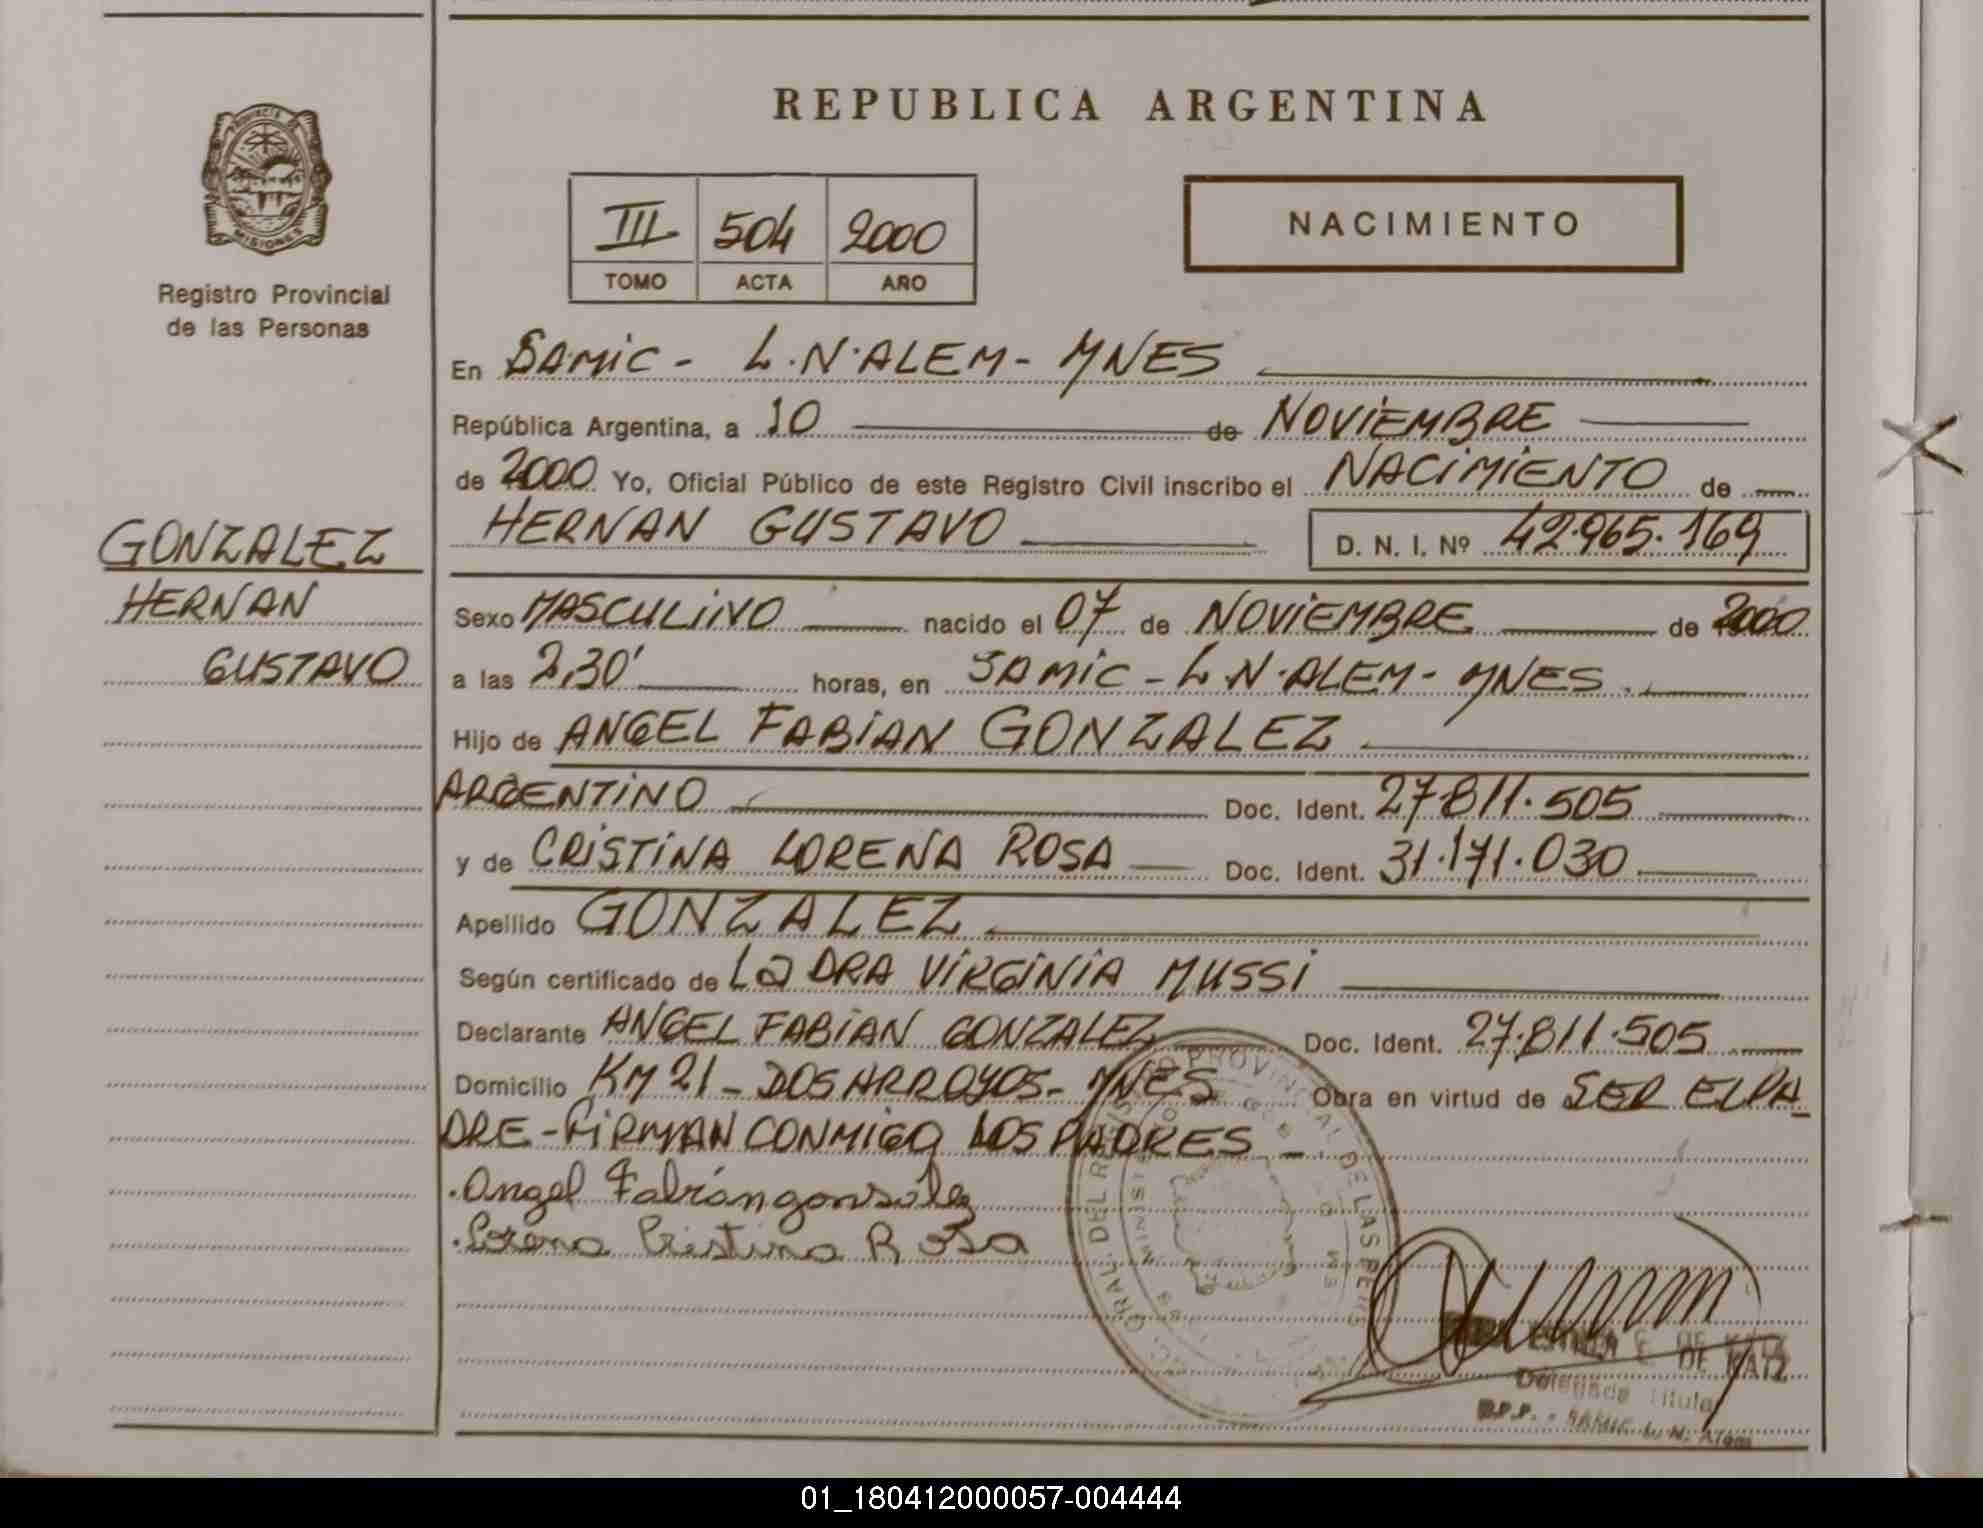 REPUBLICA ARGENTINA
PROVINCIA DE
MISIONES
Registro Provincial
de las Personas
III 504 2000
TOMO ACTA AÑO
NACIMIENTO
En SAMIC - L.N. ALEM - MNES
República Argentina, a 10 de NOVIEMBRE
de 2000 Yo, Oficial Público de este Registro Civil inscribo el NACIMIENTO de
HERNAN GUSTAVO D. N. I. Nº 42.965.169
GONZALEZ
HERNAN
GUSTAVO
Sexo MASCULINO nacido el 07 de NOVIEMBRE de 2000
a las 2,30' horas, en SAMIC - L.N. ALEM - MNES
Hijo de ANGEL FABIAN GONZALEZ
ARGENTINO Doc. Ident. 27.811.505
y de CRISTINA LORENA ROSA Doc. Ident. 31.171.030
Apellido GONZALEZ
Según certificado de La DRA VIRGINIA MUSSI
Declarante ANGEL FABIAN GONZALEZ Doc. Ident. 27.811.505
Domicilio KM 21 - DOS ARROYOS - MNES Obra en virtud de SER EL PA
DRE - FIRMAN CONMIGO LOS PADRES -
Angel Fabián gonsález
Lorena Cristina Rosa
GRAL. DEL REGISTRO PROVINCIAL DE LAS PERS
DE KATZ
Titular
SAMIC L. N. Alem
01_180412000057-004444